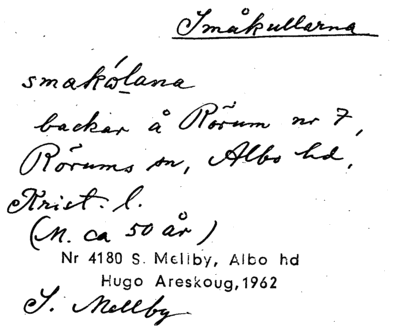 Småkullarna
smakólana
backar å Rörum nr 7,
Rörums sn, Albo hd,
Krist. l.
(M. ca 50 år)
Nr 4180 S. Mellby, Albo hd
Hugo Areskoug, 1962
S. Mellby